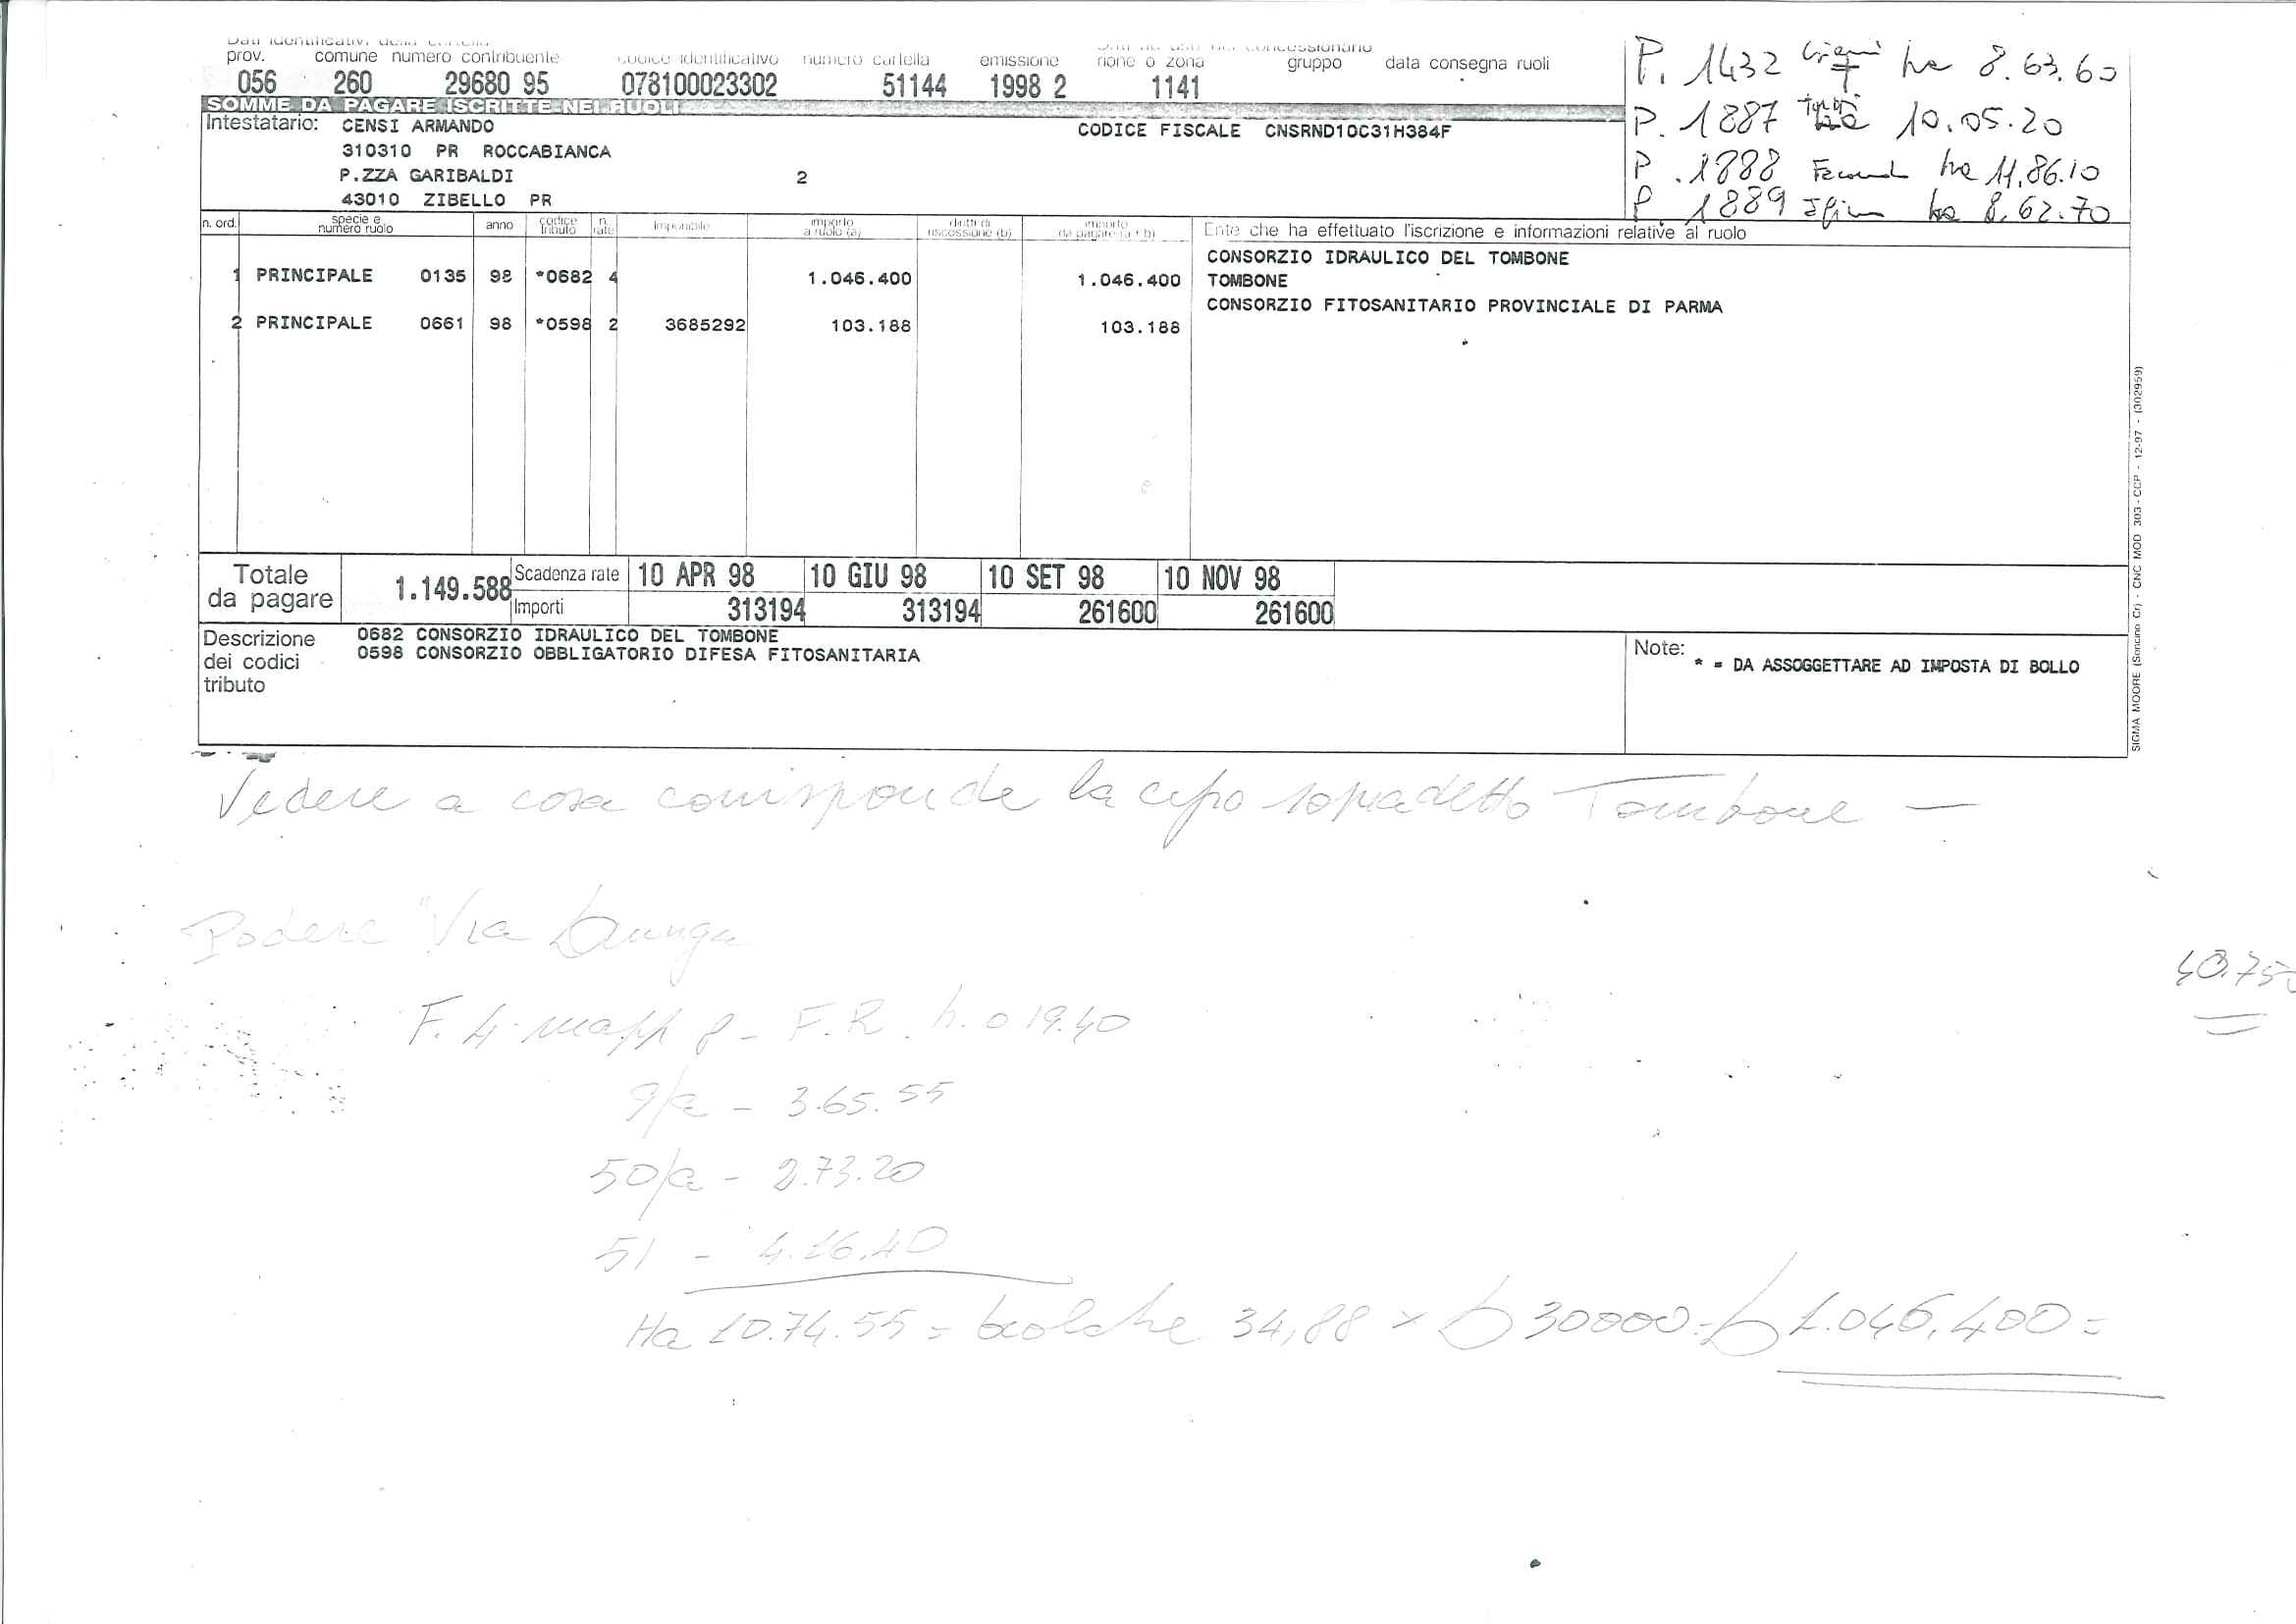 Dati identificativi della cartella
prov. comune numero contribuente codice identificativo numero cartella emissione zione o zona gruppo data consegna ruoli
056 260 29680 95 078100023302 51144 1998 2 1141
P. 1432 ha 8.63.60
P. 1887 10.05.20
P. 1888 ha 11.86.10
P. 1889 ha 8.62.70
SOMME DA PAGARE ISCRITTE NEI RUOLI
Intestatario: CENSI ARMANDO CODICE FISCALE CNSRND10C31H384F
310310 PR ROCCABIANCA
P.ZZA GARIBALDI 2
43010 ZIBELLO PR
n. ord. specie e numero ruolo anno codice tributo n. rate imponibile importo a ruolo (a) diritti di riscossione (b) importo da pagare (a + b) Ente che ha effettuato l'iscrizione e informazioni relative al ruolo
CONSORZIO IDRAULICO DEL TOMBONE
1 PRINCIPALE 0135 98 *0682 4 1.046.400 1.046.400 TOMBONE
CONSORZIO FITOSANITARIO PROVINCIALE DI PARMA
2 PRINCIPALE 0661 98 *0598 2 3685292 103.188 103.188
Totale da pagare 1.149.588
Scadenza rate 10 APR 98 10 GIU 98 10 SET 98 10 NOV 98
Importi 313194 313194 261600 261600
Descrizione dei codici tributo
0682 CONSORZIO IDRAULICO DEL TOMBONE
0598 CONSORZIO OBBLIGATORIO DIFESA FITOSANITARIA
Note:
* = DA ASSOGGETTARE AD IMPOSTA DI BOLLO
SIGMA MOORE (Soncino Cr) - CNC MOD 303 - CCP - 12-97 - (302959)
Vedere a cosa corrisponde la sopradetto Tombone -
Podere "Via Lunga
40.75
F. 4 mapp 8 - F.R. h. 0 19.40
9/a - 3.65.55
50/a - 2.73.20
51 - 4.16.40
Ha 10.74.55 = biolche 34,88 x £ 30000 = £ 1.046.400 =